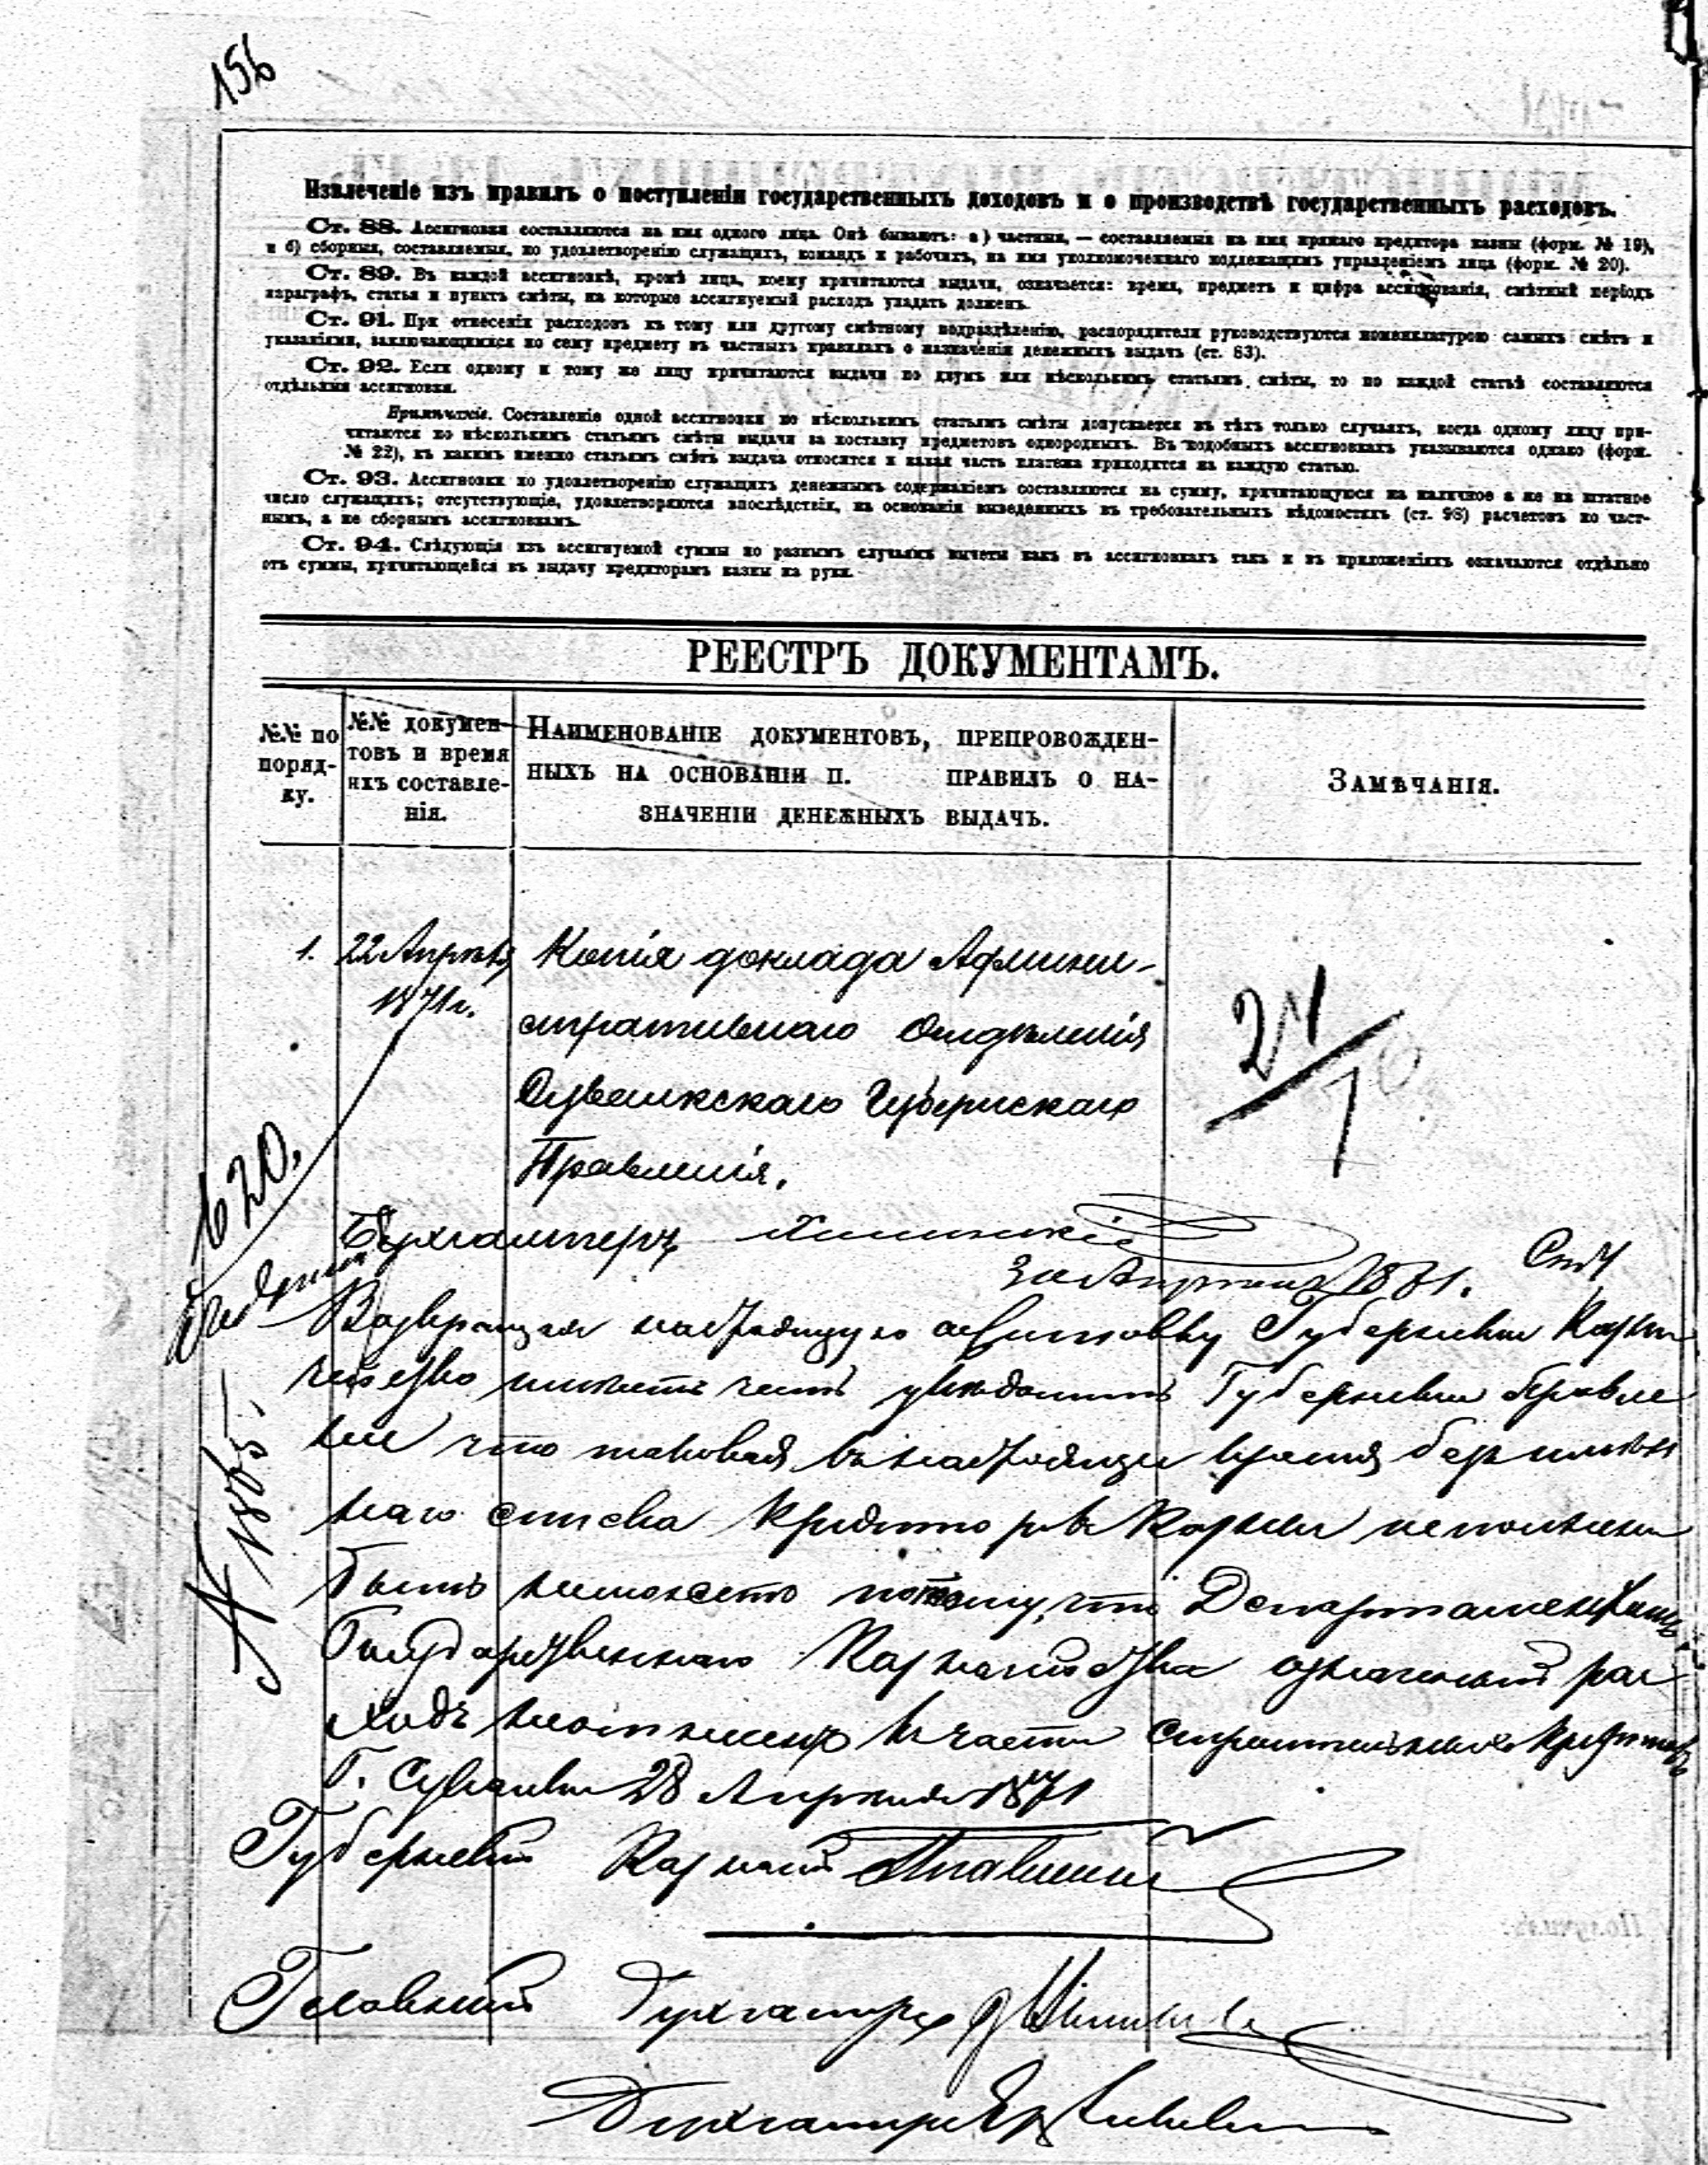 156
Извлеченіе изъ правилъ о поступленіи государственныхъ доходовъ и о производствѣ государственныхъ расходовъ.
Ст. 88. Ассигновки составляются на имя одного лица. Онѣ бываютъ: а) частныя, — составляемыя на имя прямаго кредитора казны (форм. № 19),
и б) сборныя, составляемыя, по удовлетворенію служащихъ, командъ и рабочихъ, на имя уполномоченнаго подлежащимъ управленіемъ лица (форм. № 20).
Ст. 89. Въ каждой ассигновкѣ, кромѣ лица, коему причитаются выдачи, означается: время, предметъ и цифра ассигнованія, смѣтный періодъ
параграфъ, статья и пунктъ смѣты, на которые ассигнуемый расходъ упадать долженъ.
Ст. 91. При отнесеніи расходовъ къ тому или другому смѣтному подраздѣленію, распорядители руководствуются номенклатурою самихъ смѣтъ и
указаніями, заключающимися по сему предмету въ частныхъ правилахъ о назначеніи денежныхъ выдачъ (ст. 83).
Ст. 92. Если одному и тому же лицу причитаются выдачи по двумъ или нѣсколькимъ статьямъ смѣты, то по каждой статьѣ составляются
отдѣльныя ассигновки.
Примѣчаніе. Составленіе одной ассигновки по нѣсколькимъ статьямъ смѣты допускается въ тѣхъ только случаяхъ, когда одному лицу при-
читаются по нѣсколькимъ статьямъ смѣты выдачи за поставку предметовъ однородныхъ. Въ подобныхъ ассигновкахъ указываются однако (форм.
№ 22), къ какимъ именно статьямъ смѣтъ выдача относится и какая часть платежа приходится на каждую статью.
Ст. 93. Ассигновки по удовлетворенію служащихъ денежнымъ содержаніемъ составляются на сумму, причитающуюся на наличное а не на штатное
число служащихъ; отсутствующіе, удовлетворяются впослѣдствіи, на основаніи выведенныхъ въ требовательныхъ вѣдомостяхъ (ст. 98) расчетовъ по част-
нымъ, а не сборнымъ ассигновкамъ.
Ст. 94. Слѣдующія изъ ассигнуемой суммы по разнымъ случаямъ вычеты какъ въ ассигновкахъ такъ и въ приложеніяхъ означаются отдѣльно
отъ суммы, причитающейся въ выдачу кредиторамъ казны на руки.
РЕЕСТРЪ ДОКУМЕНТАМЪ.
№№ по поряд-ку.
№№ докумен-товъ и время ихъ составле-нія.
Наименованіе документовъ, препровожден-
ныхъ на основаніи п. правилъ о на-
значеніи денежныхъ выдачъ.
Замѣчанія.
1. 22 Апрѣля Копія доклада Админи-
1871 г.
стративнаго Отдѣленія
Сувалкскаго Губернскаго
Правленія.
Бухгалтеръ
30 Апрѣля 1871.
Возвращая настоящую ассигновку Губернская Казна
имѣетъ честь увѣдомить Губернское Правле
ніе что таковая въ настоящее время
наго списка Кредиторовъ Казны исполнена
быть неможетъ потому, что Департаментъ
Государственнаго Казначейства означенный рас
ходъ въ части строительнаго Кредитовъ
Г. Сувалки 28 Апрѣля 1871
Губернскій Казначей
Главный Бухгалтеръ
Бухгалтеръ
№ 1885